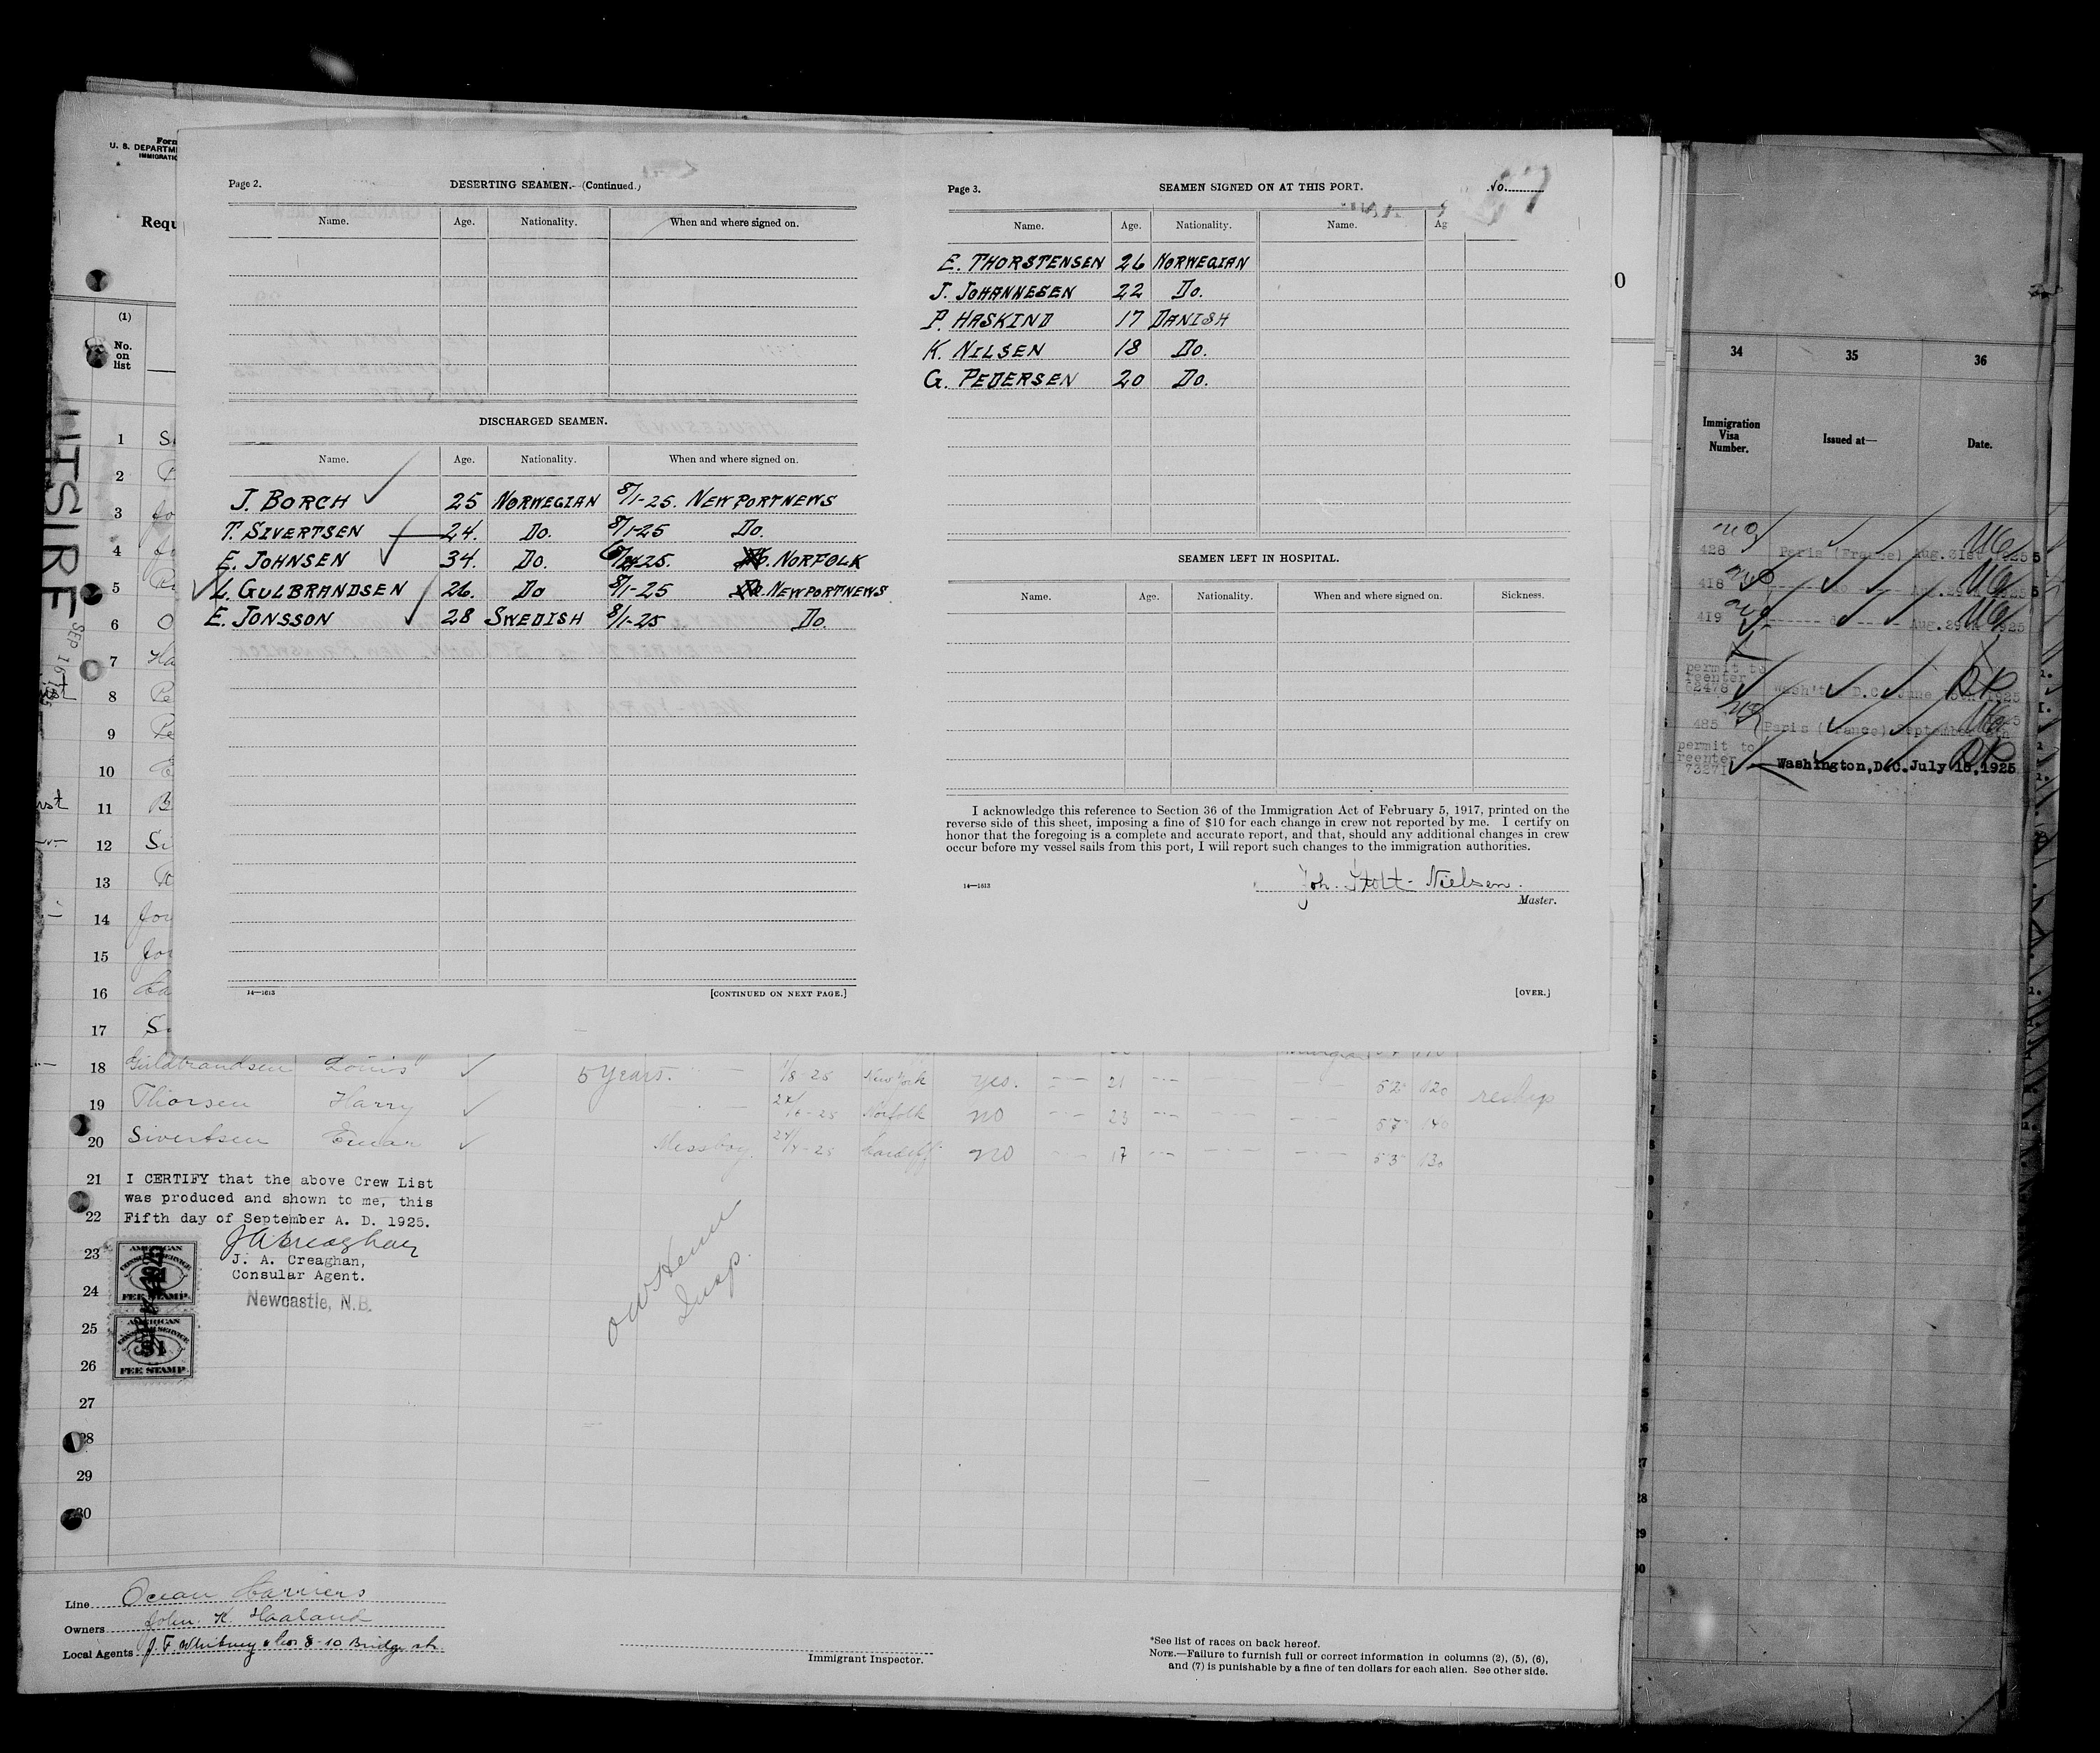 Form
U. S. DEPARTM
IMMIGRATIO
Requ
(1)
No.
on
list
UTSIRE
SEP 16 1925
Page 2.
DESERTING SEAMEN.—(Continued.)
Name. Age. Nationality. When and where signed on.
DISCHARGED SEAMEN.
Name. Age. Nationality. When and where signed on.
J. BORCH 25 NORWEGIAN 8/1-25. NEWPORTNEWS
T. SIVERTSEN 24. Do. 8/1-25 Do.
E. JOHNSEN 34. Do. NORFOLK
L. GULBRANDSEN 26. Do 8/1-25 NEWPORTNEWS
E. JONSSON 28 SWEDISH 8/1-25 Do.
14—1613
[CONTINUED ON NEXT PAGE.]
Page 3.
SEAMEN SIGNED ON AT THIS PORT.
No.
Name. Age. Nationality. Name. Ag
E. THORSTENSEN 26 NORWEGIAN
J. JOHANNESEN 22 Do.
P. HASKIND 17 DANISH
K. NILSEN 18 Do.
G. PEDERSEN 20 Do.
SEAMEN LEFT IN HOSPITAL.
Name. Age. Nationality. When and where signed on. Sickness.
I acknowledge this reference to Section 36 of the Immigration Act of February 5, 1917, printed on the
reverse side of this sheet, imposing a fine of $10 for each change in crew not reported by me. I certify on
honor that the foregoing is a complete and accurate report, and that, should any additional changes in crew
occur before my vessel sails from this port, I will report such changes to the immigration authorities.
14—1613
Joh. Stolt-Nielsen.
Master.
[OVER.]
1
2
3
4
5
6
7
8
9
10
11
12
13
14
15
16
17
18 Guldbrandsen Louis 5 years. 1/8-25 New York yes. 21 52 120 reship
19 Thorsen Harry Norfolk no 23 57 140
20 Sivertsen Einar Messboy Cardiff no 17 53 130
21
22
23
24
25
26
27
28
29
30
I CERTIFY that the above Crew List
was produced and shown to me, this
Fifth day of September A. D. 1925.
J A Creaghan
J. A. Creaghan,
Consular Agent.
Newcastle, N.B.
AMERICAN
CONSULAR SERVICE
FEE STAMP
AMERICAN
CONSULAR SERVICE
$1
FEE STAMP
Insp.
Line Ocean Carriers
Owners John. K. Haaland
Local Agents J. F. Whitney & Co. 8-10 Bridge str.
Immigrant Inspector.
*See list of races on back hereof.
NOTE.—Failure to furnish full or correct information in columns (2), (5), (6),
and (7) is punishable by a fine of ten dollars for each alien. See other side.
34 35 36
Immigration
Visa
Number.
Issued at—
Date.
428 Paris (France) Aug. 31st 1925
418 do Aug. 29th 1925
419 do Aug. 29th 1925
permit to
reenter
62478 Wash't D.C. June 1925
485 Paris (France) September
permit to
reenter
73271 Washington, D.C. July 16, 1925